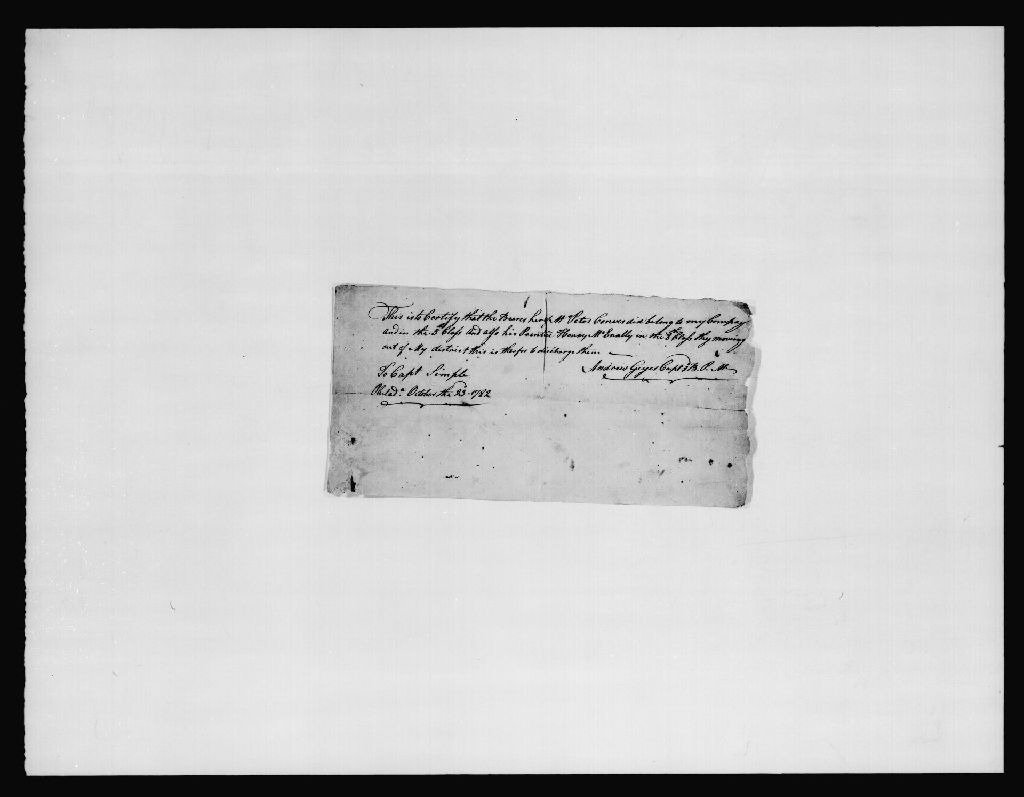 This is to Certify that the Bearer hereof Mr Peter Conver did belong to my Company
and in the 3d Class And also his Henry McEnally in the 8th Class they moveing
out of My district this is therfor to discharge them
Andrew Geyer Capt 3 B. P. M.
To Capt Simple
Philada October the 23 1782